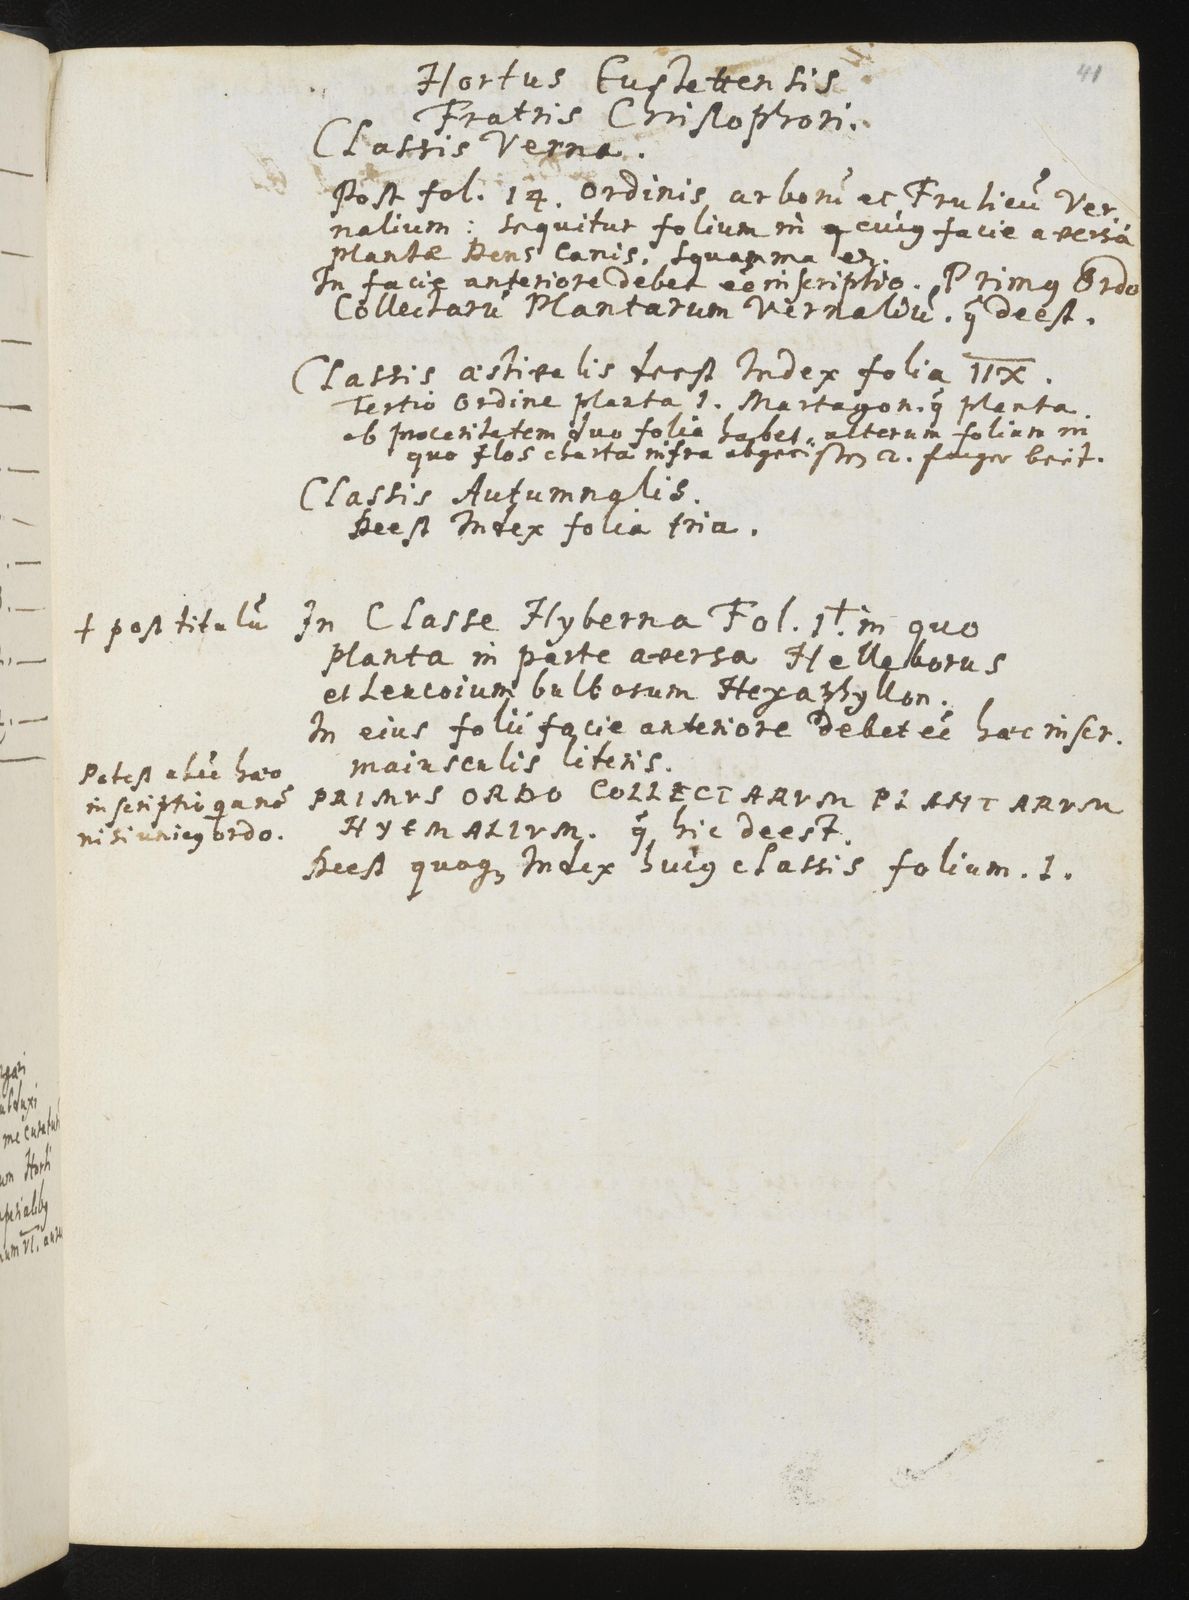 41
Hortus Eustettensis
Fratris Christophori.
Classis Verna.
Post fol. 14. Ordinis arborũ et Fruticũ Ver,
nalium: sequitur folium in q̢ cuiꝰ facie aversa
plantæ Dens Canis. Squamma etc.
In facie anteriore debet eẽ inscriptio. Primꝰ Ordo
Collectarũ Plantarum Vernaliũ. q̃ deest.
Classis æstivalis deest Index folia IIX.
Tertio Ordine planta 1. Martagon. q̃ planta
ob proceritatem duo folia habet, alterum folium in
quo flos charta infra 2. breit.
Classis Autumnalis.
Deest Index folia tria.
+ post titulũ
In Classe Hyberna Fol. 1.+ in quo
planta in parte aversa Helleborus
et Leucoium bulbosum Hexaphyllon.
In eius folii facie anteriore debet eẽ hæc inscr.
maiusculis literis.
Potest abẽe hæc
inscriptio qa nõ
nisi unicꝰ ordo.
PRIMVS ORDO COLLECTARVM PLANTARVM
HYEMALIVM. q̃ hic deest.
Deest quoqꝫ Index huiꝰ classis folium. 1.